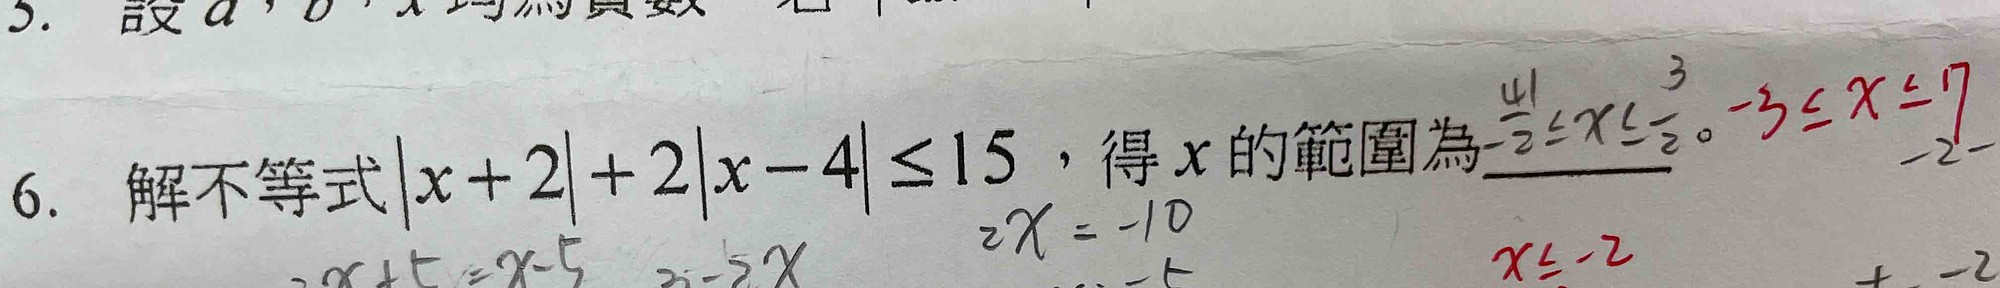 5. 設 a, b, x 均為實數
6. 解不等式|x+2|+2|x-4|≤15，得 x 的範圍為 -41/2≤x≤3/2。 -3≤x≤7
-2-
2x=-10
x+5=x-5
x≤-2
-2